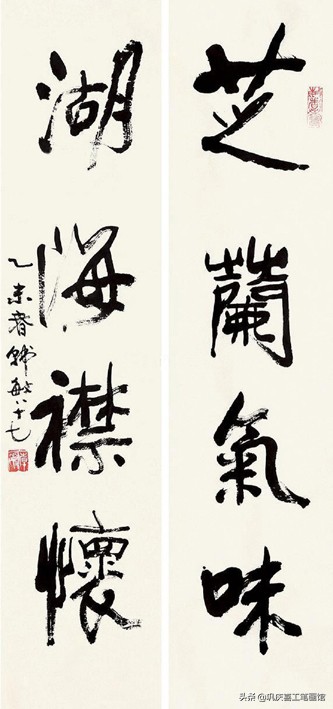 芝蘭氣味
湖海襟懷
乙未春韓敏八十七
头条@巩庆喜工笔画馆